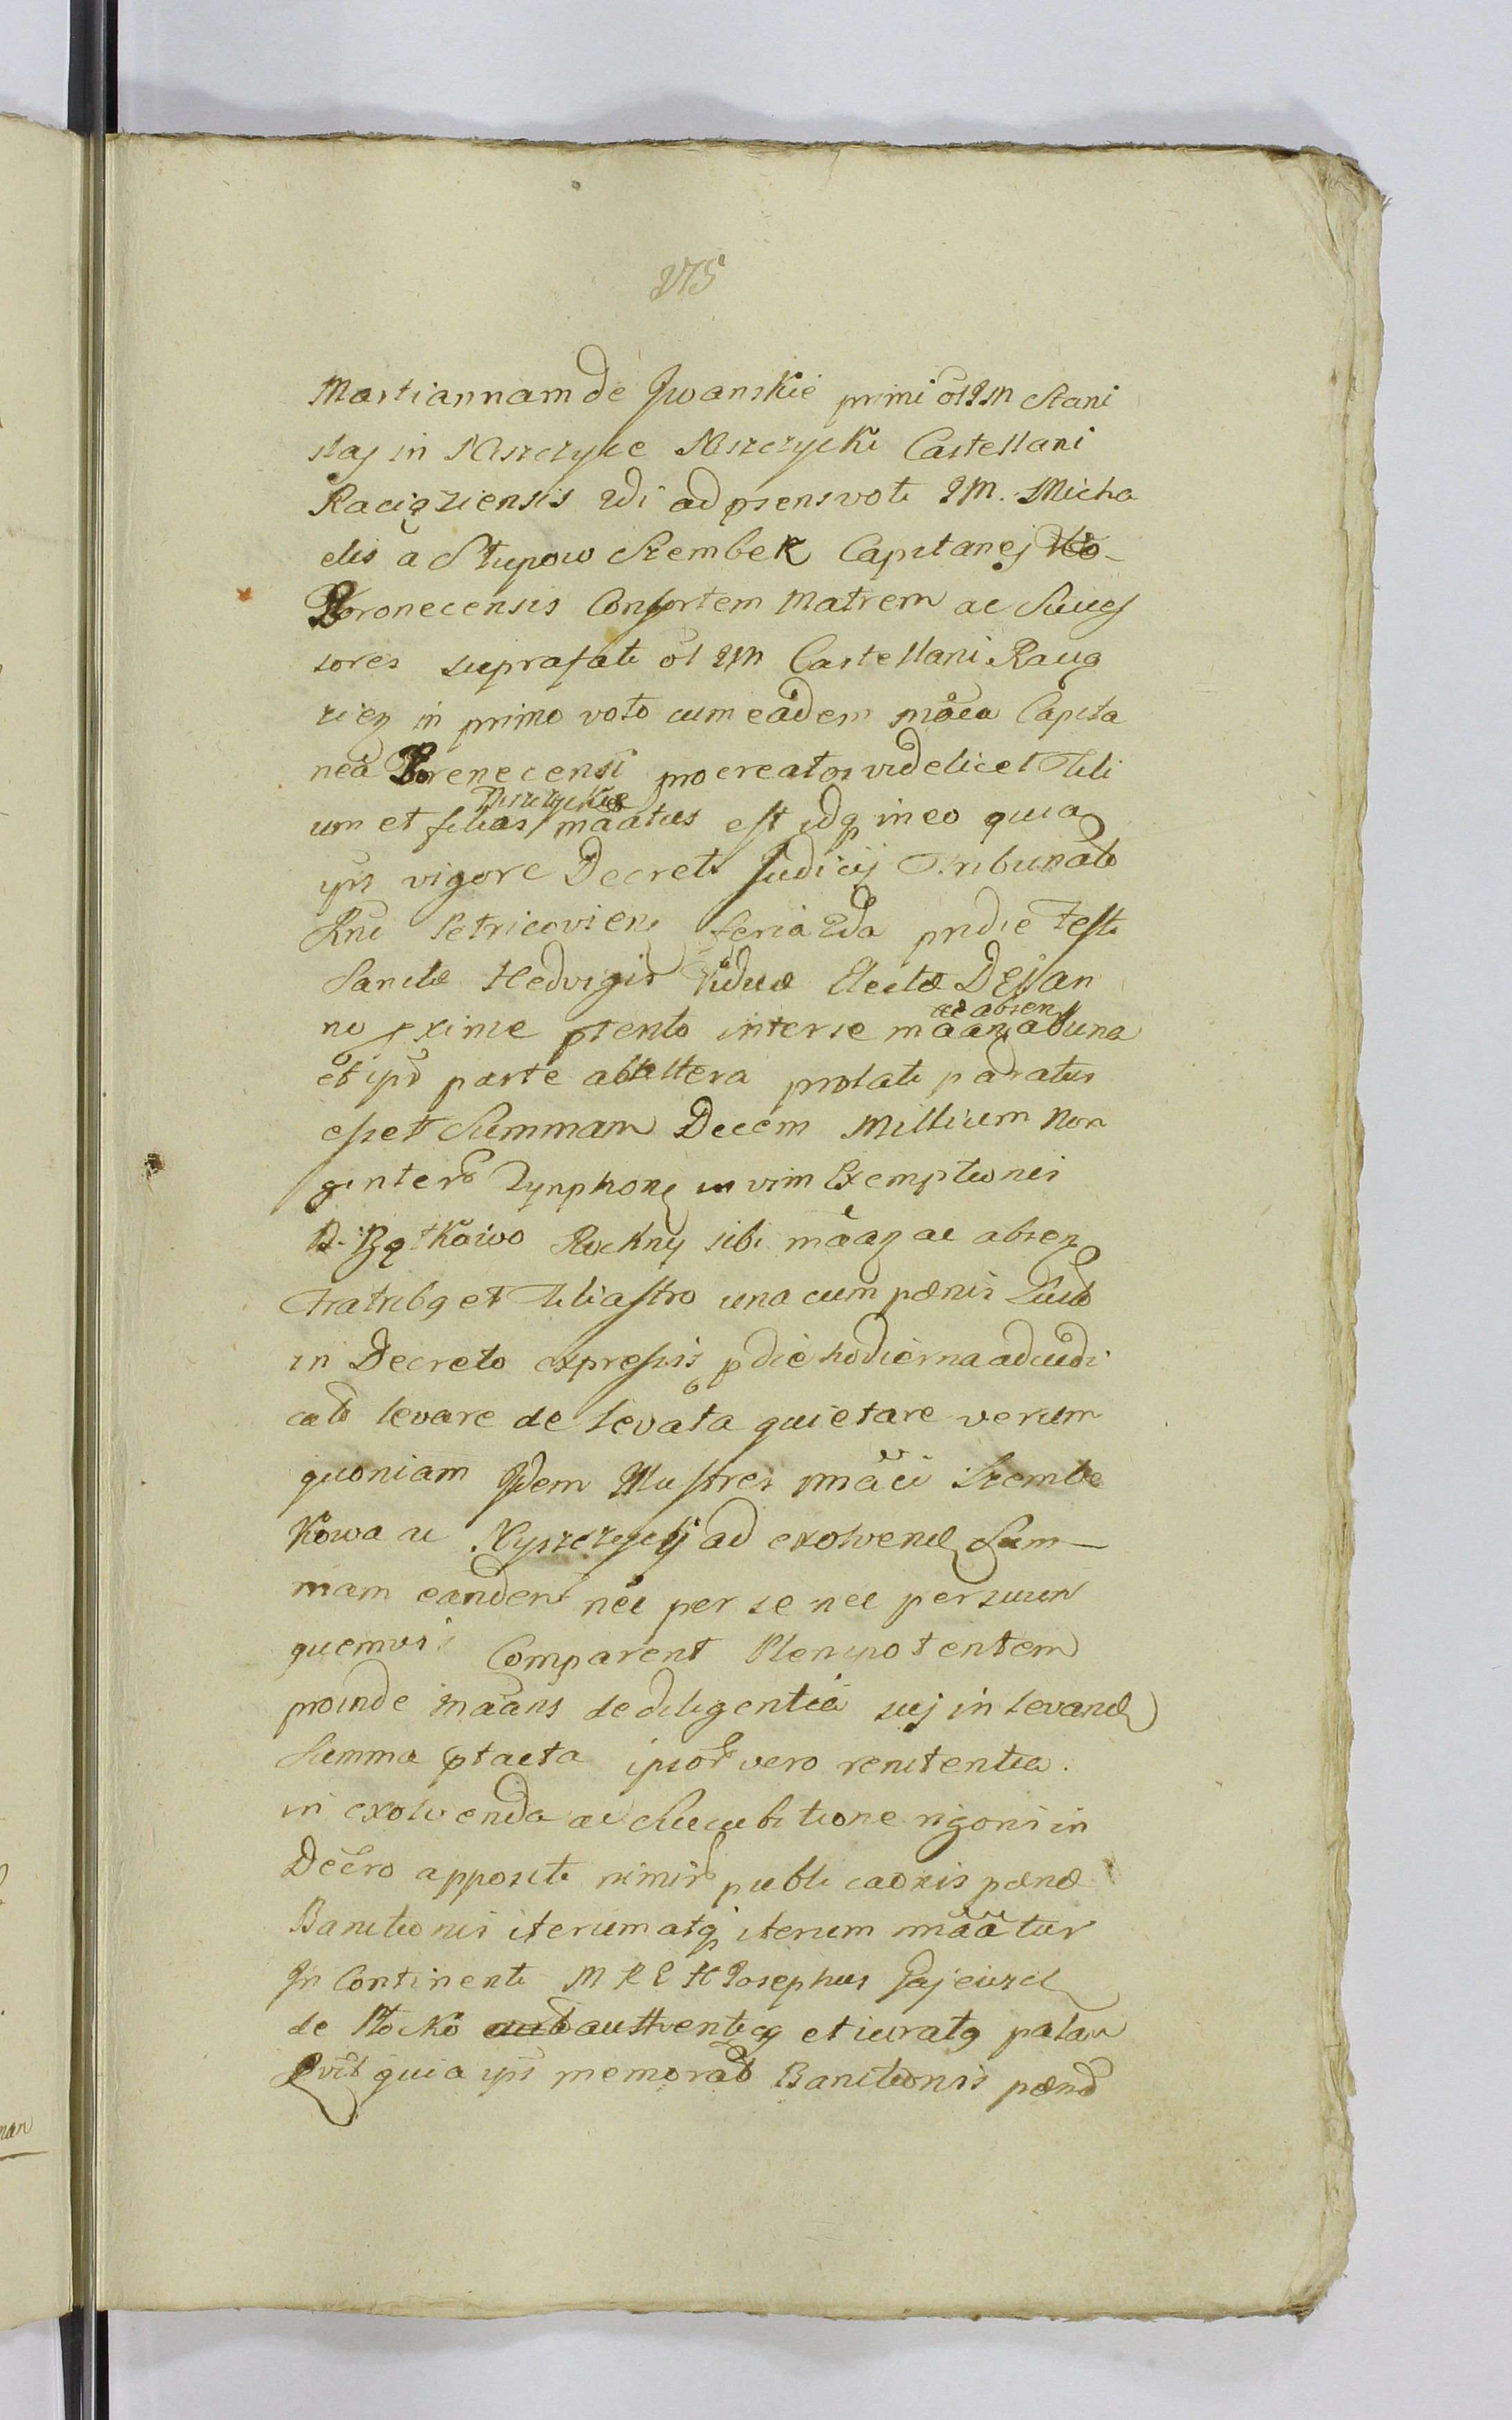 275
Martiannam de Jwanskie primi ol IM Stani
slaj in Niszczyce Niszczycki Castellani
Raciąziensis 2di ad prsens voti IM. Micha
elis a Słupow Szembek Capitanej
Boronecensis Consortem Matrem ac Succes
sores suprafati ol IM Castellani Racią
zien in primo voto cum eadem mãca Capita
nea Borenecensi procreatos videlicet Fili
um et filias Niszczyckie mãatus est idq in eo quia
ips vigore Decreti Judicij Tribunal
Rni Petricovien feria 2da pridie Festi
Sanctæ Hedvigis Viduæ Electæ De Jan
no proxime prtento inter se mãan ac absen ab una
et ips parte ab altera prolati paratus
esset Summam Decem Millium Non
gentor Tynphon in vim Exemptionis
B. Bątkowo Rockny sibi mãan ac absen
Fratribq et Filiastro una cum pœnis Lucro
in Decreto expressis p die hodierna adiudi
cat levare de levata quietare verum
quoniam Jidem Illustres mãci Szembe
kowa ac Nyszczyckij ad exolvend Sum-
mam eandem nec per se nec per suum
quemvis Comparent Plenipotentem
proinde mãans de diligentia sui in levand
Summa prtacta ipsor vero renitentia
in exolvenda ac Succubitione rigoris in
Decro appositi nimir publicaonis pœnæ
Banitionis iterum atq iterum mãatur
In Continenti M R E H Josephus Gajewsci
de Płocko authenticq et iuratq palam
Rvit quia ips memorat Banitionis pœnæ